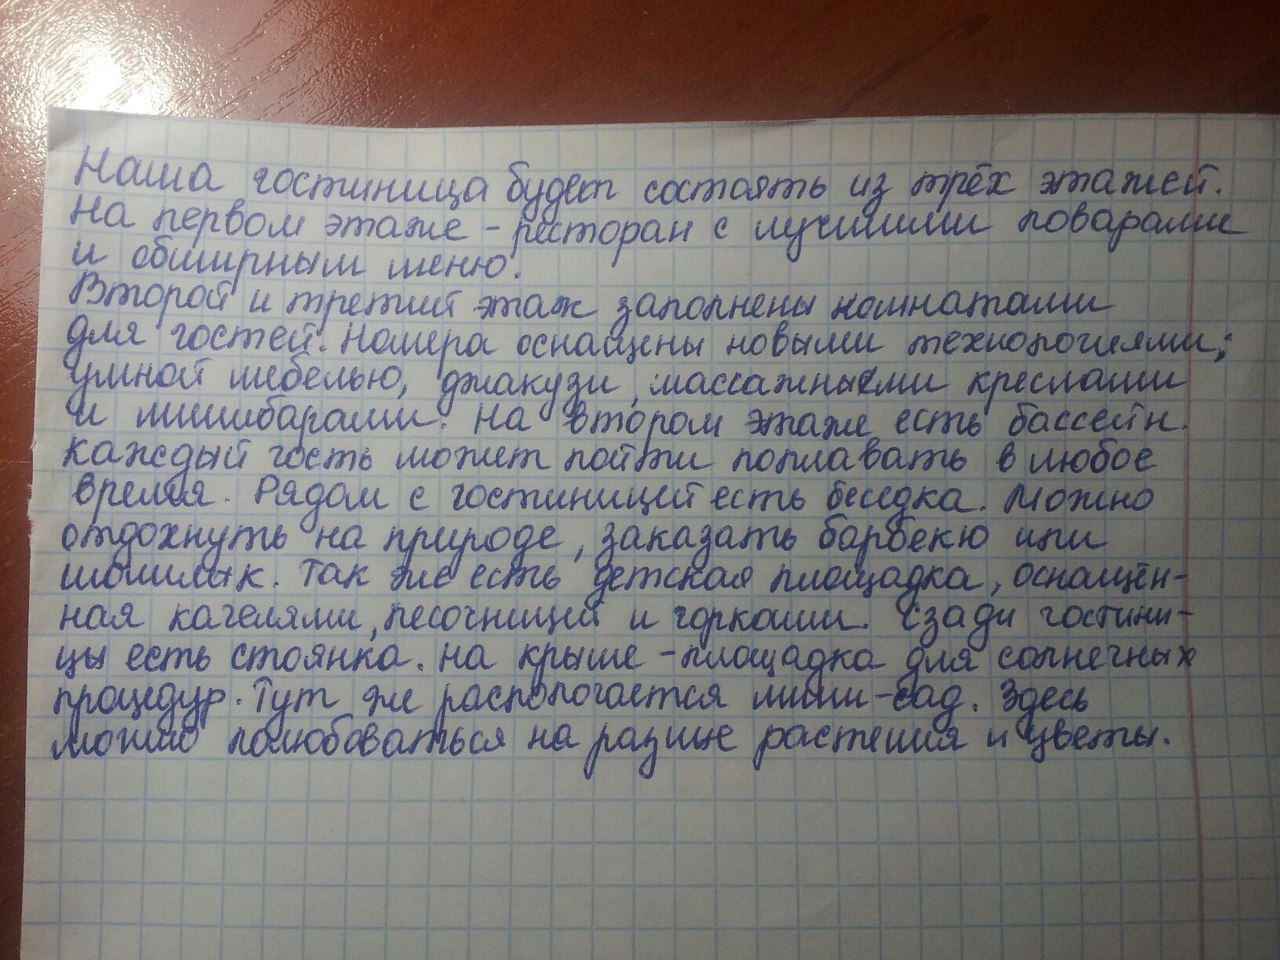 Наша гостиница будет состоять из трёх этажей.
На первом этаже - ресторан с лучшими поварами
и обширным меню.
Второй и третий этаж заполнены комнатами
для гостей. Номера оснащены новыми технологиями;
умной мебелью, джакузи, массажными креслами
и минибарами. На втором этаже есть бассейн.
Каждый гость может пойти поплавать в любое
время. Рядом с гостиницей есть беседка. Можно
отдохнуть на природе, заказать барбекю или
шашлык. Так же есть детская площадка, оснащён-
ная качелями, песочницей и горками. Сзади гостини-
цы есть стоянка. На крыше - площадка для солнечных
процедур. Тут же распологается мини-сад. Здесь
можно полюбоваться на разные растения и цветы.